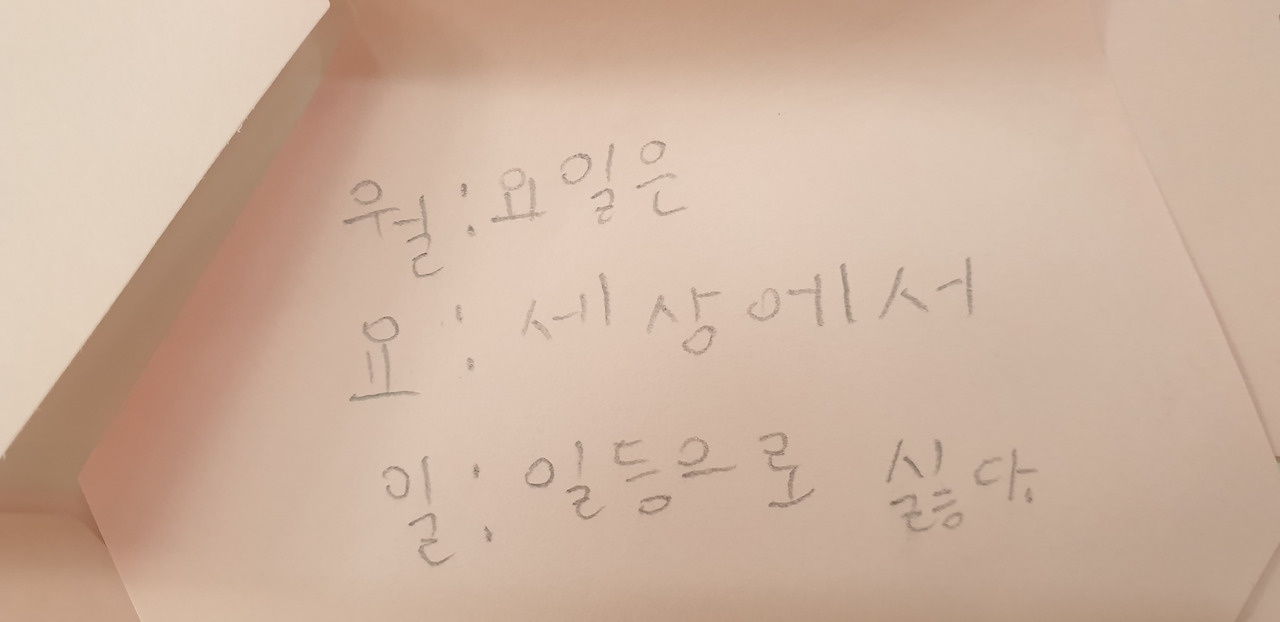 월:요일은
요:세상에서
일:일등으로 싫다.